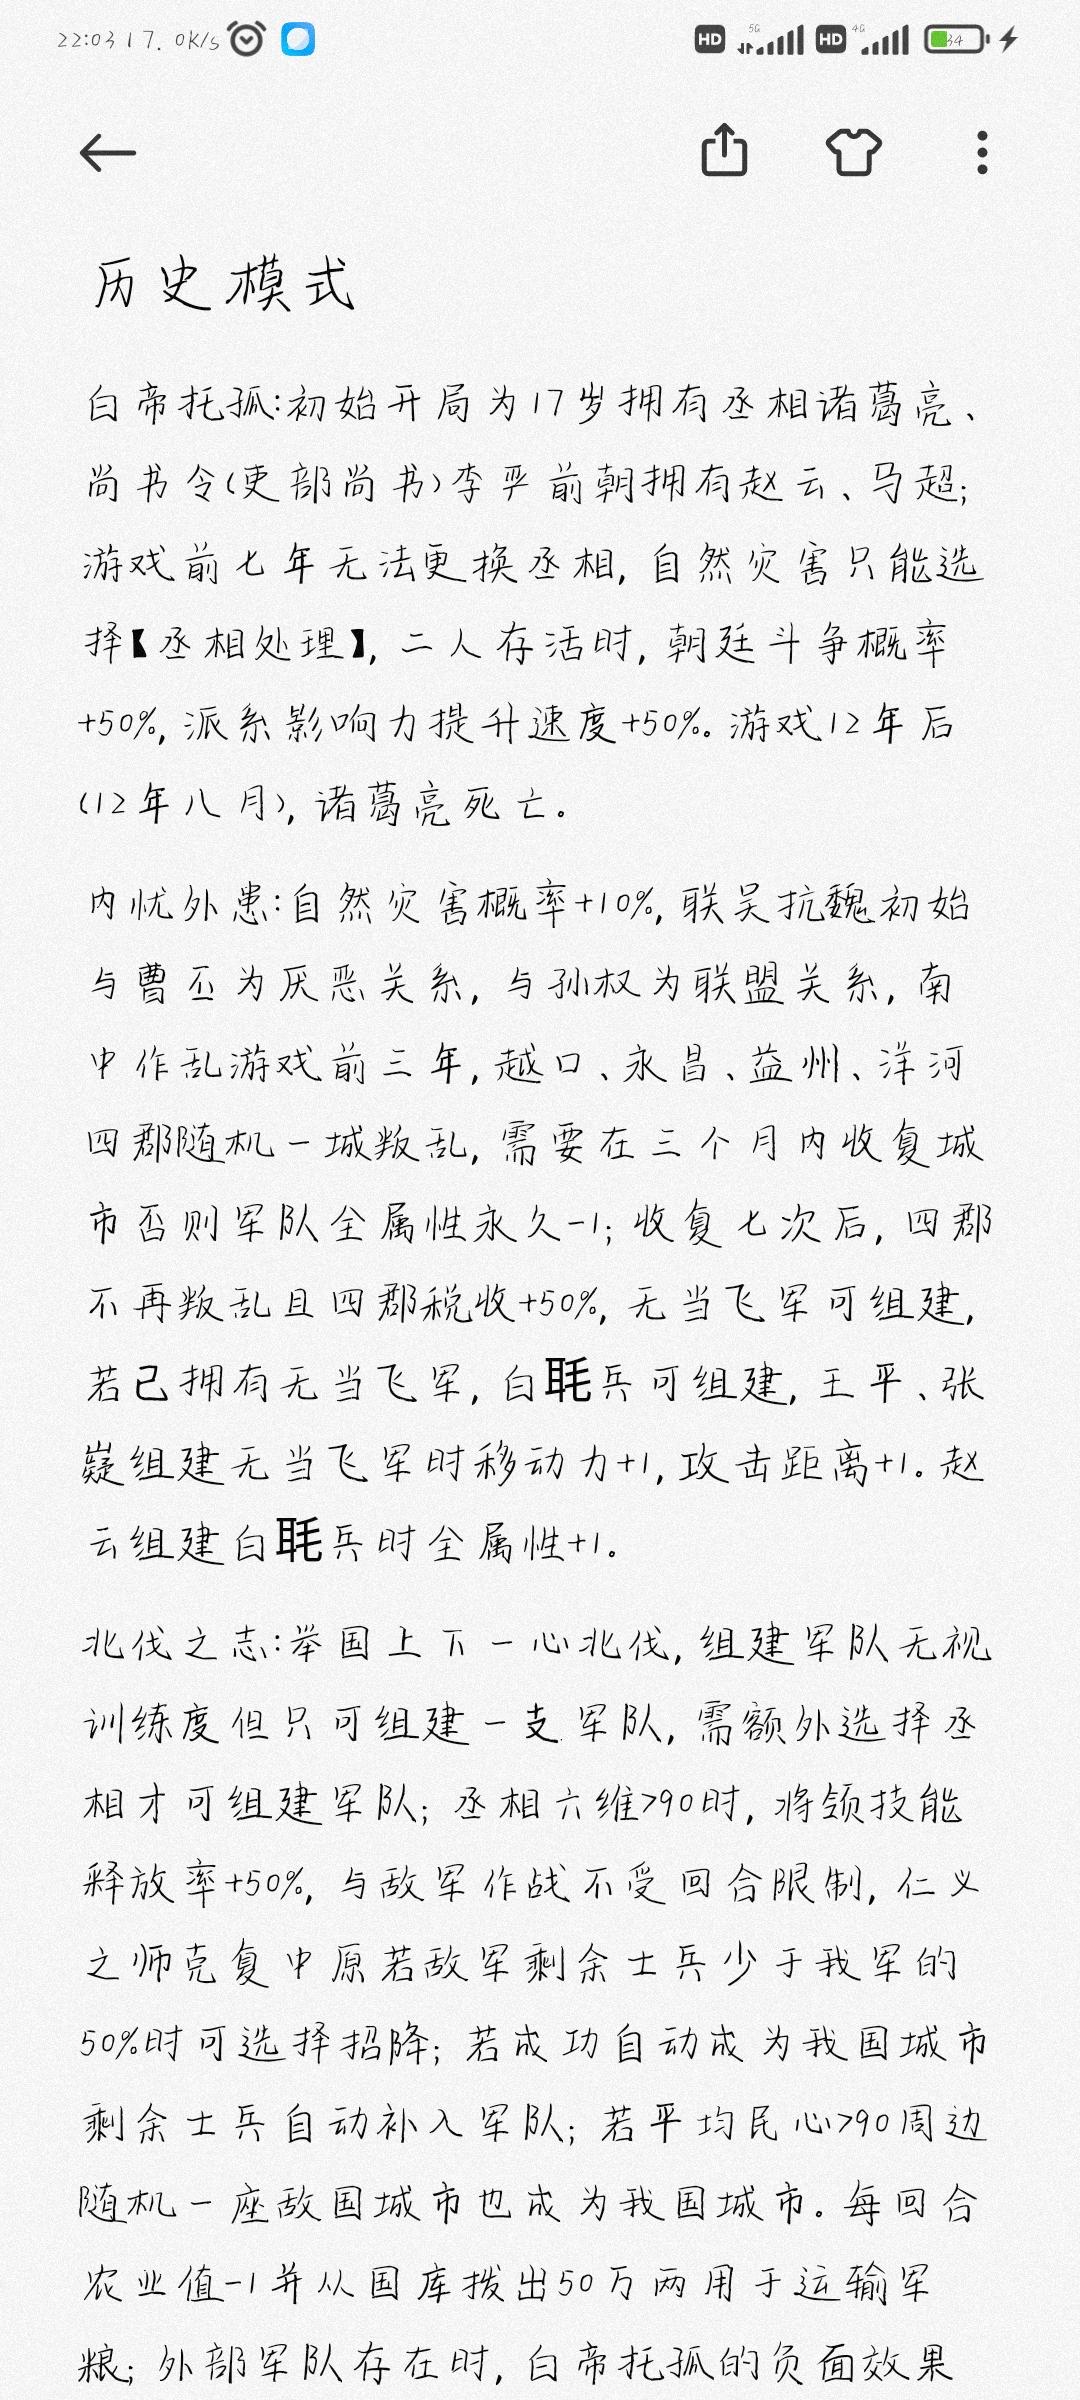 22:03 17.0K/s HD 5G HD 4G 34
历史模式
白帝托孤:初始开局为17岁拥有丞相诸葛亮、
尚书令(吏部尚书)李严前朝拥有赵云、马超;
游戏前七年无法更换丞相,自然灾害只能选
择【丞相处理】,二人存活时,朝廷斗争概率
+50%,派系影响力提升速度+50%。游戏12年后
(12年八月),诸葛亮死亡。
内忧外患:自然灾害概率+10%,联吴抗魏初始
与曹丕为厌恶关系,与孙权为联盟关系,南
中作乱游戏前三年,越口、永昌、益州、洋河
四郡随机一城叛乱,需要在三个月内收复城
市否则军队全属性永久-1;收复七次后,四郡
不再叛乱且四郡税收+50%,无当飞军可组建,
若已拥有无当飞军,白毦兵可组建,王平、张
嶷组建无当飞军时移动力+1,攻击距离+1。赵
云组建白毦兵时全属性+1。
北伐之志:举国上下一心北伐,组建军队无视
训练度但只可组建一支军队,需额外选择丞
相才可组建军队;丞相六维>90时,将领技能
释放率+50%,与敌军作战不受回合限制,仁义
之师克复中原若敌军剩余士兵少于我军的
50%时可选择招降;若成功自动成为我国城市
剩余士兵自动补入军队;若平均民心>90周边
随机一座敌国城市也成为我国城市。每回合
农业值-1并从国库拨出50万两用于运输军
粮;外部军队存在时,白帝托孤的负面效果